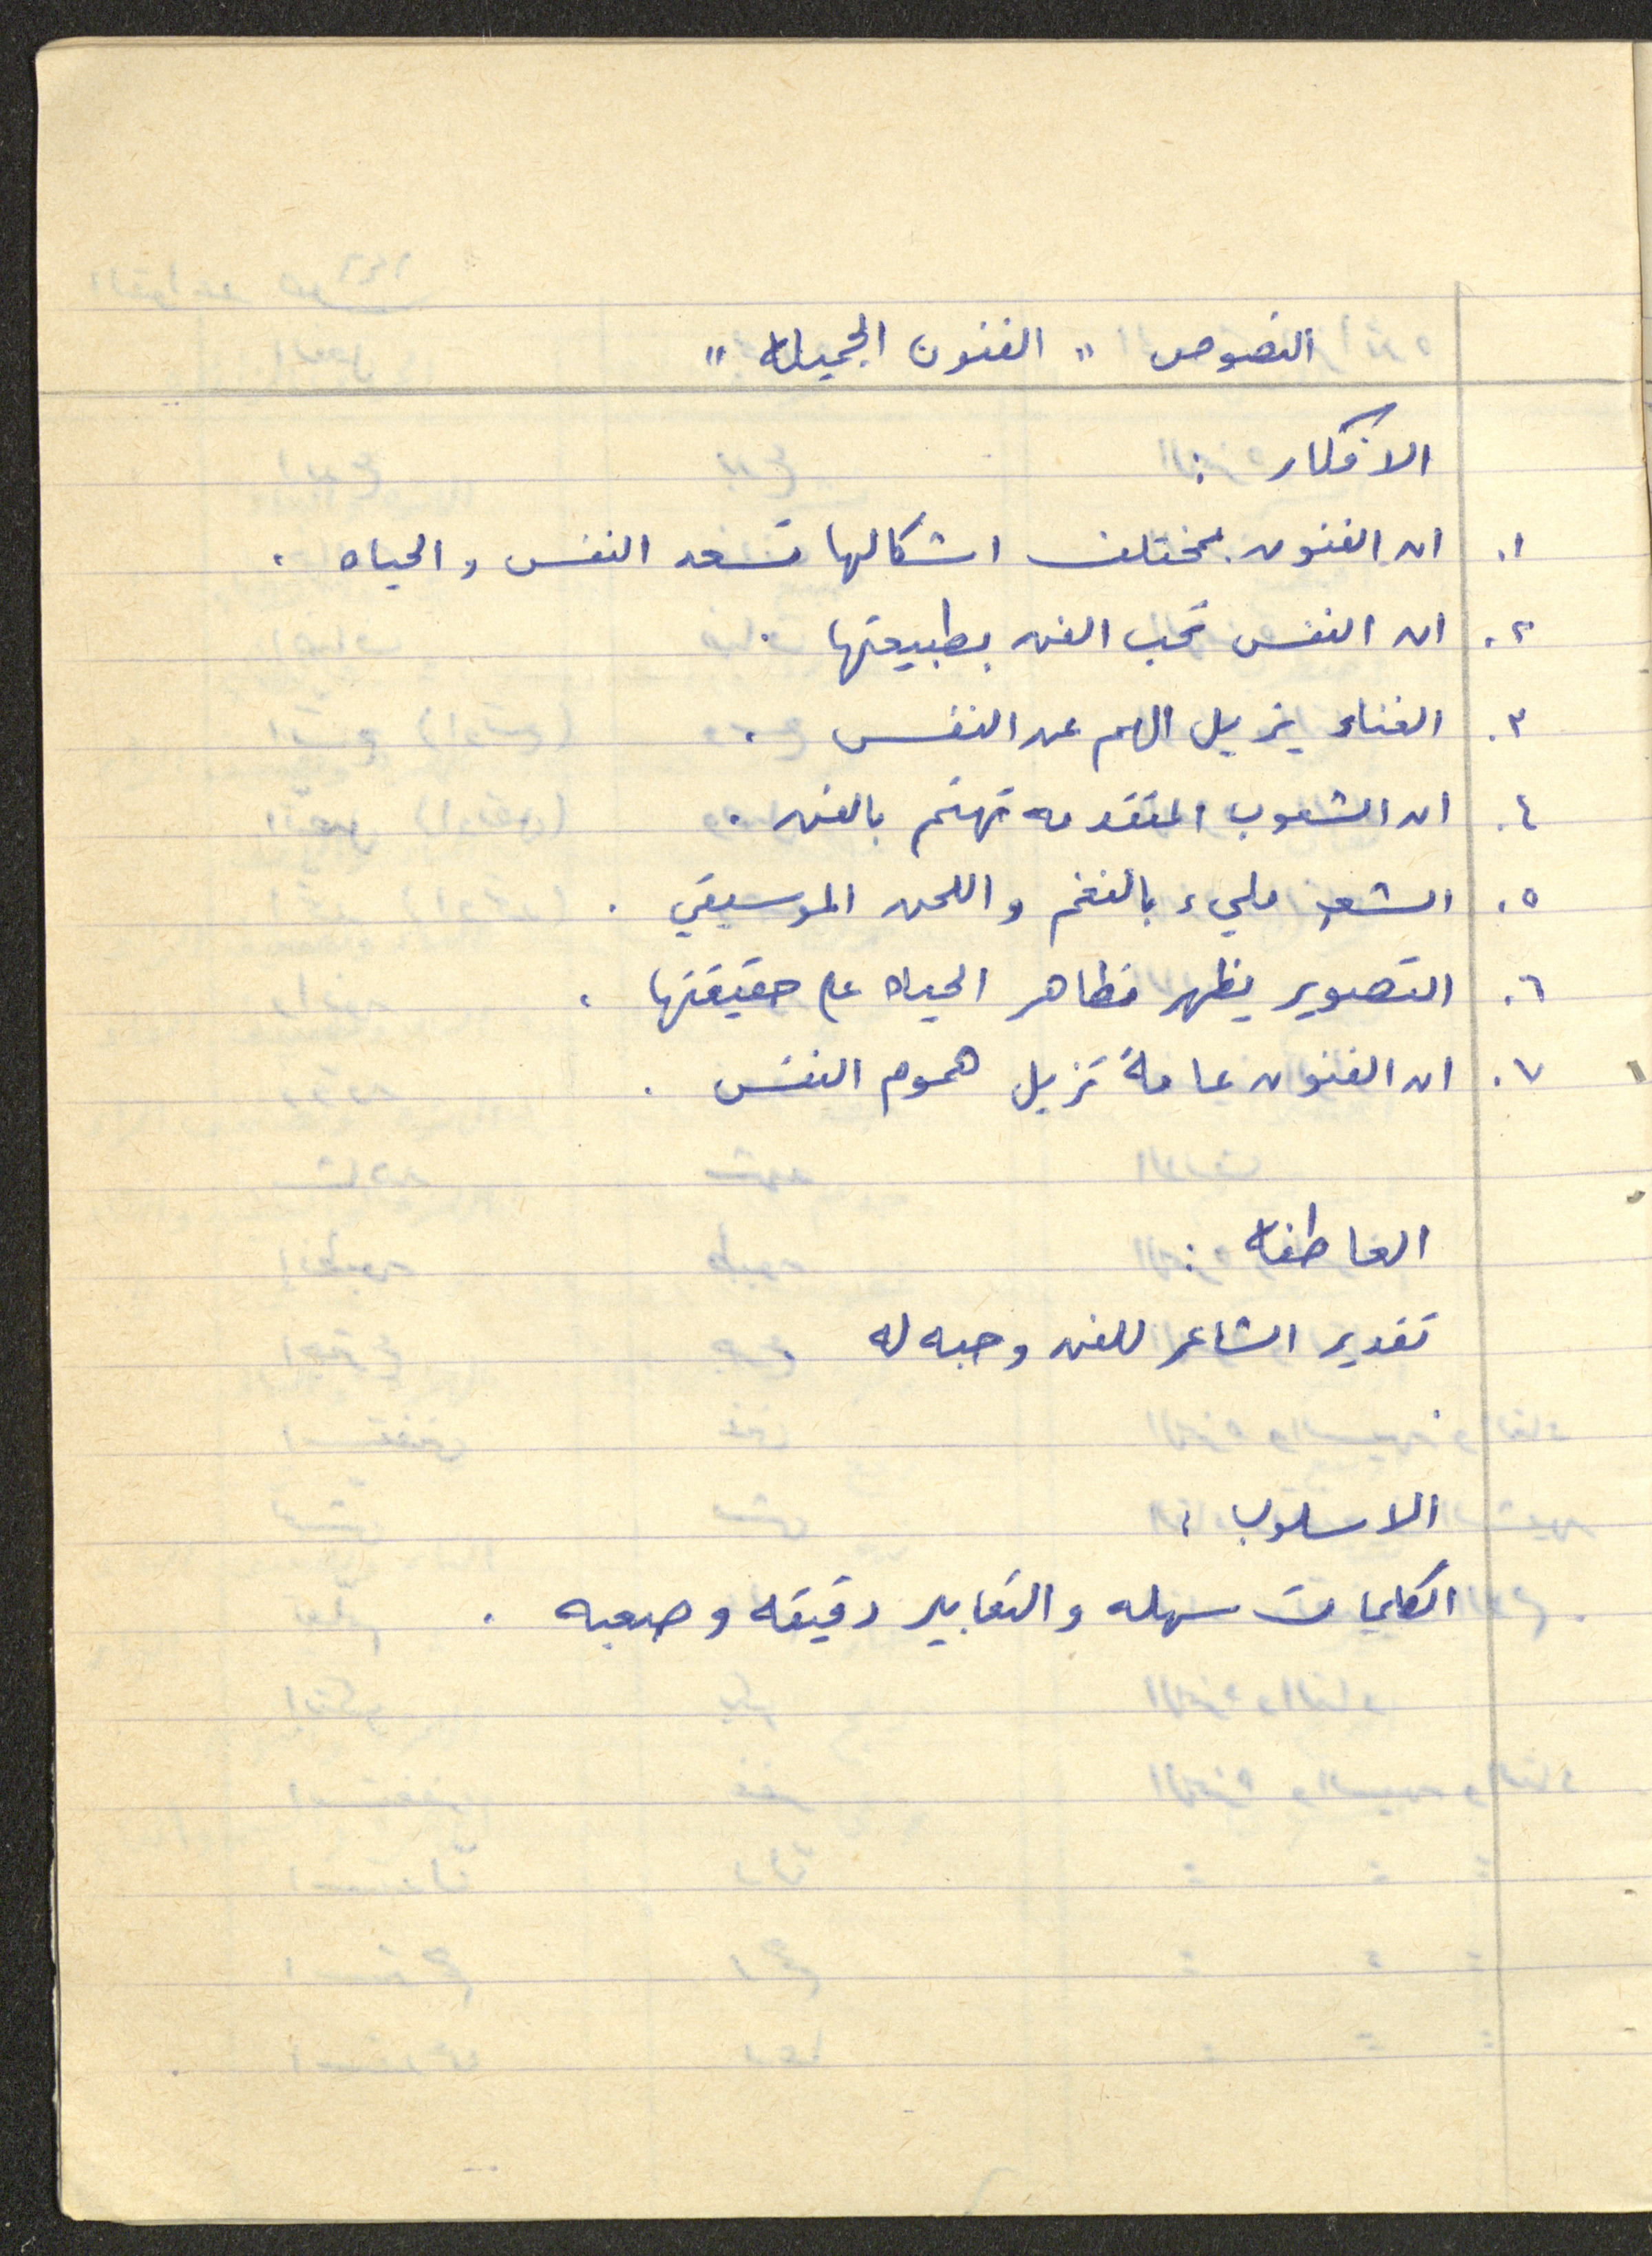 النصوص " الفنون الجميله "
الافكار :
١. ان الفنون بمختلف اشكالها تسعد النفس والحياه .
٢. ان النفس تحب الفن بطبيعتها .
٣. الغناء يزيل الهم عن النفس .
٤. ان الشعوب المتقدمه تهتم بالفن .
٥. الشعر مليء بالنغم واللحن الموسيقي .
٦. التصوير يظهر مظاهر الحياه على حقيقتها .
٧. ان الفنون عامة تزيل هموم النفس .
العاطفه :
تقدير الشاعر للفن وحبه له .
الاسلوب :
الكلمات سهله والتعابير دقيقه وصعبه .